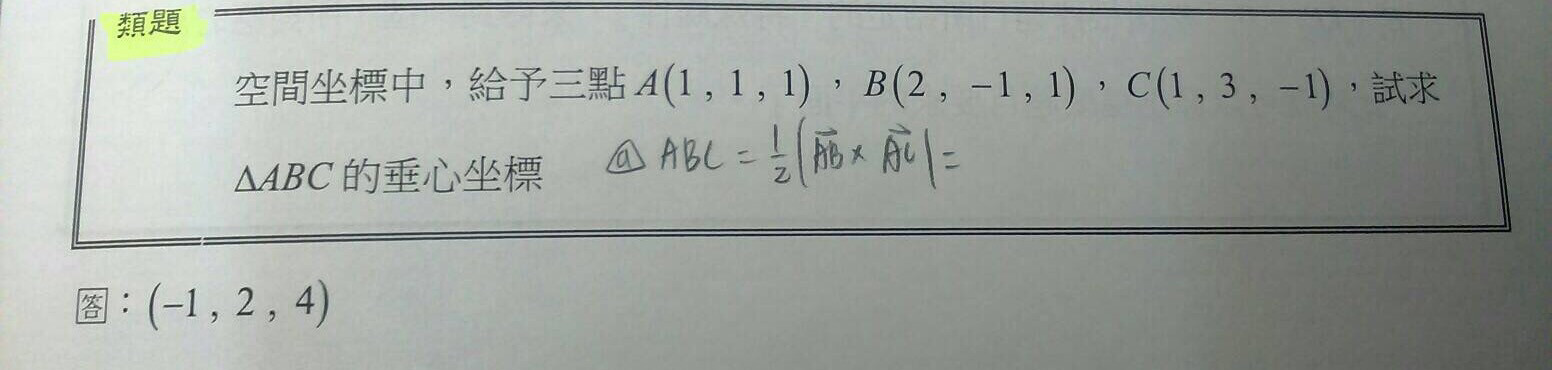 類題
空間坐標中，給予三點 A(1 , 1 , 1) ， B(2 , −1 , 1) ， C(1 , 3 , −1) ，試求
ΔABC 的垂心坐標 ⓐ ABC = 1/2 |AB⃗ × AC⃗| =
答：(−1 , 2 , 4)